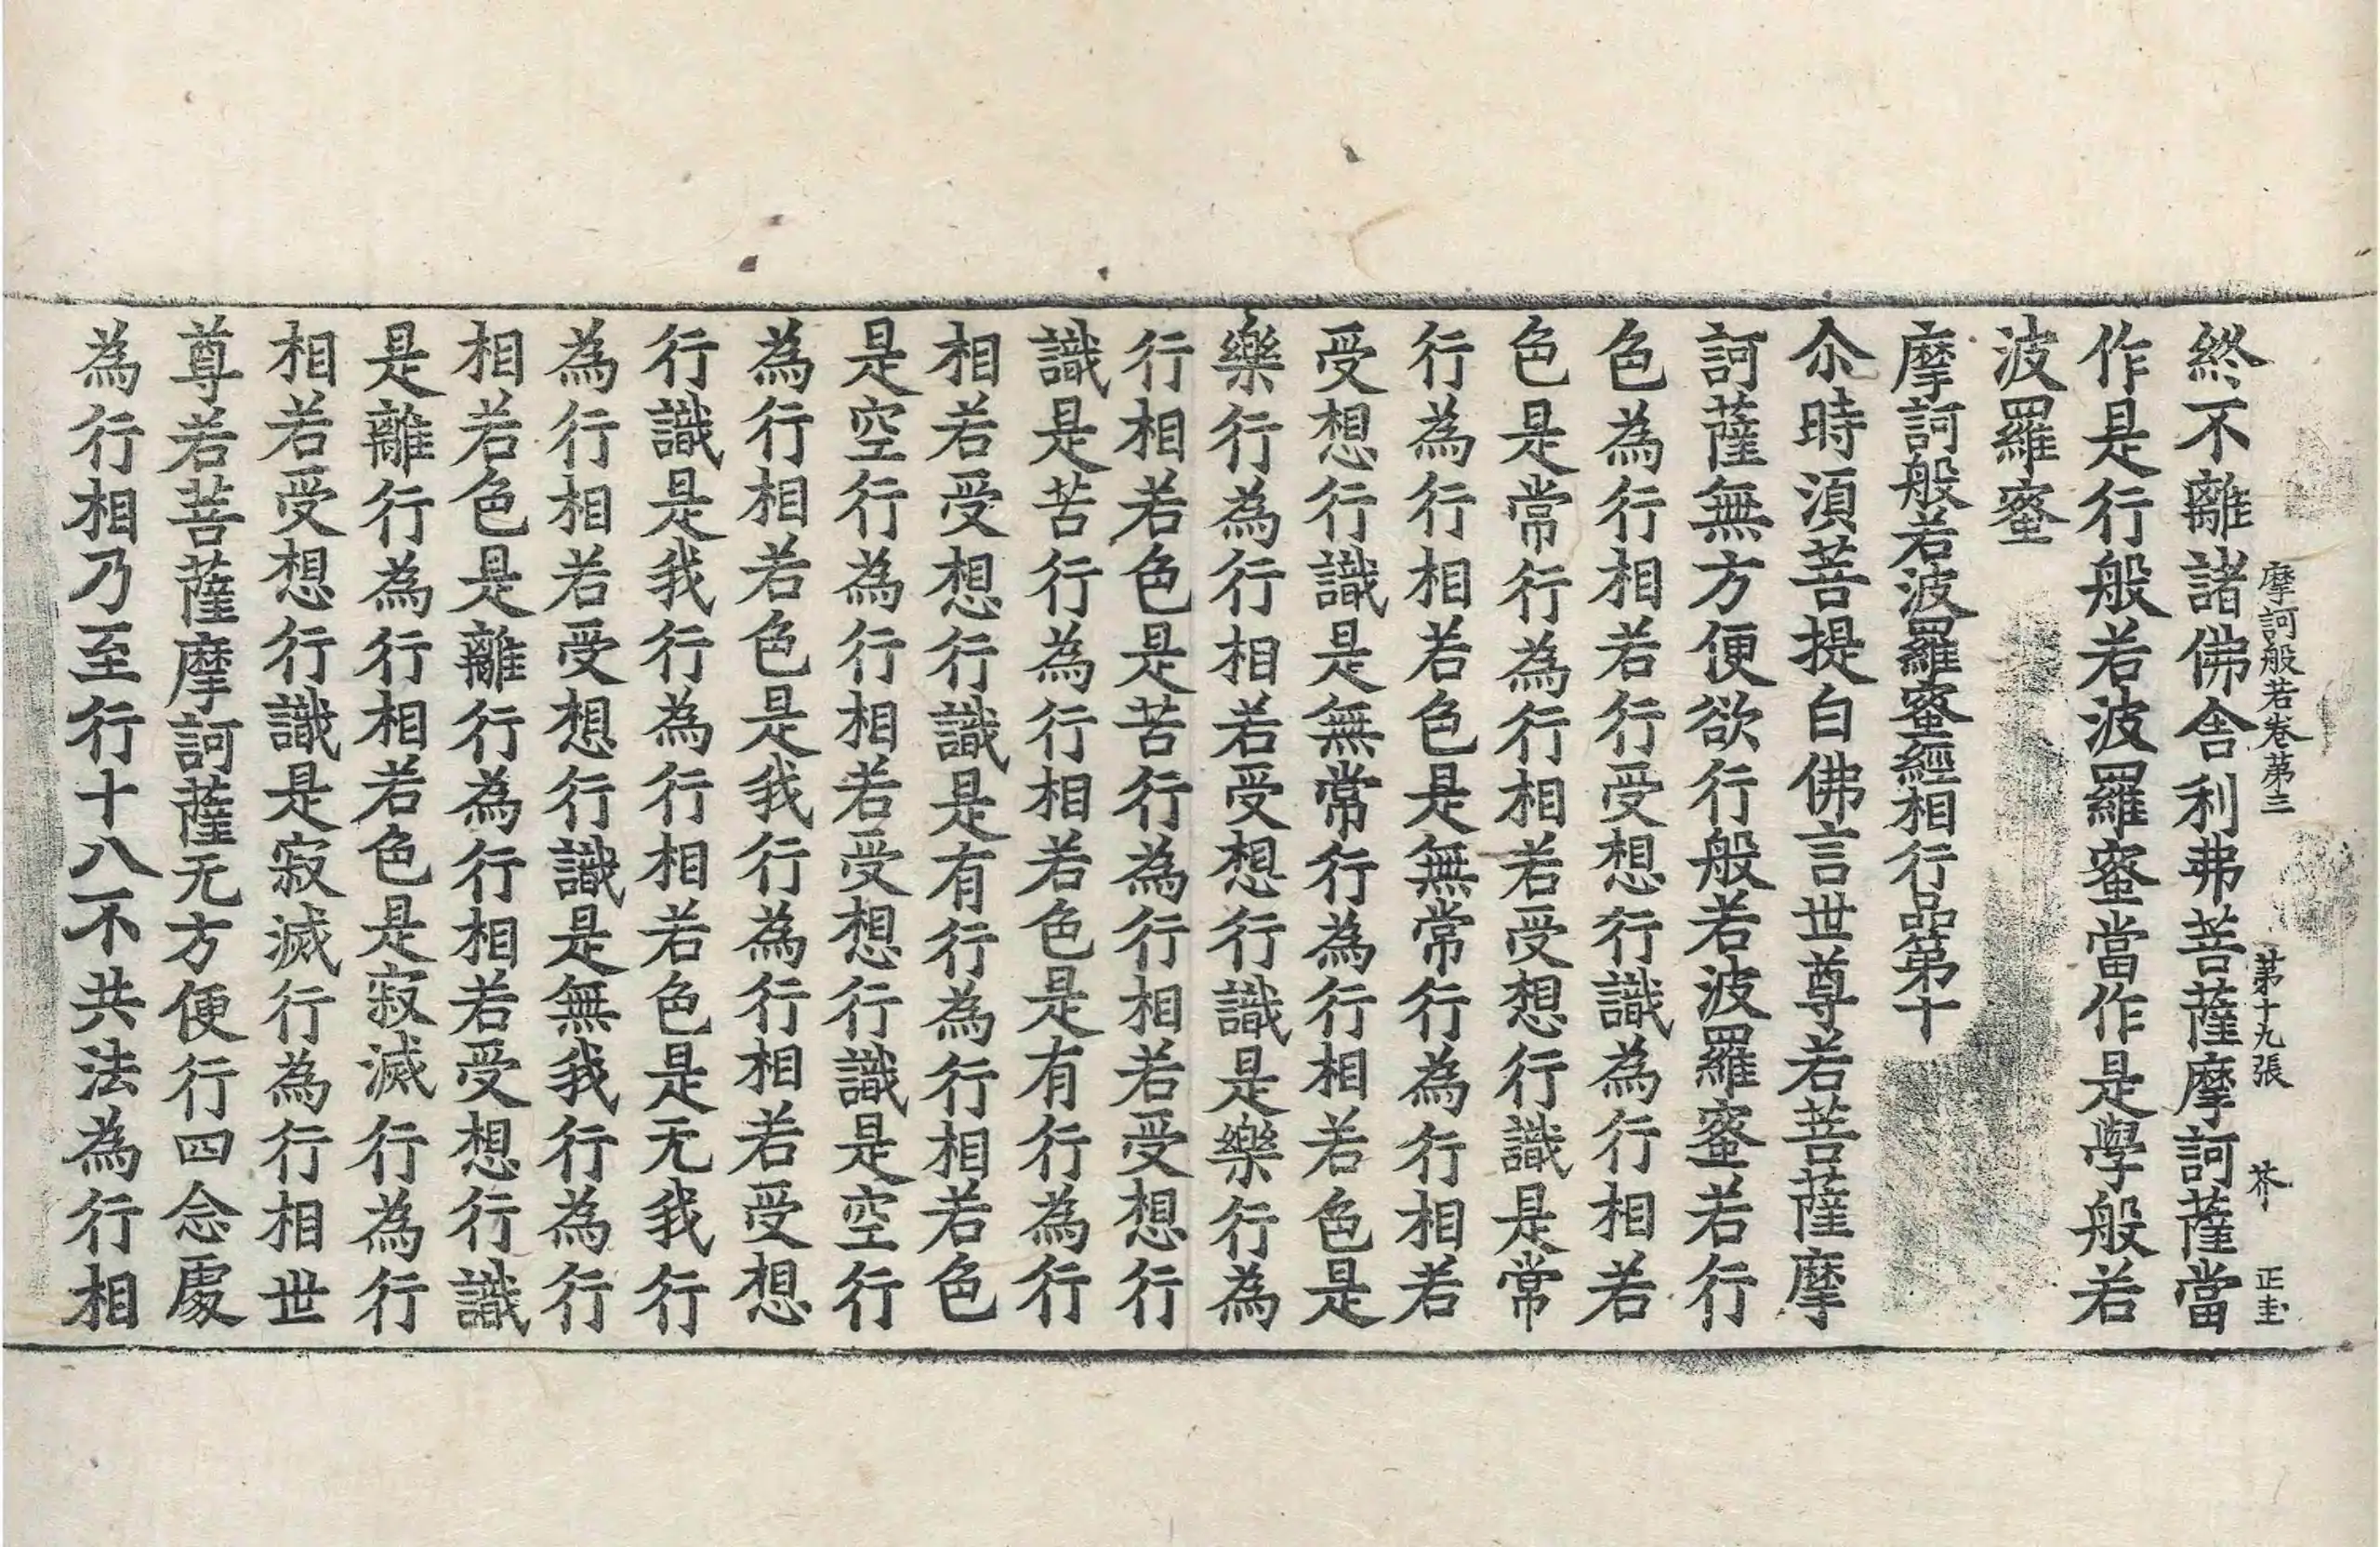 摩訶般若卷第三 第十九張 芥 正圭
終不離諸佛舍利弗菩薩摩訶薩當
作是行般若波羅蜜當作是學般若
波羅蜜
摩訶般若波羅蜜經相行品第十
尒時須菩提白佛言世尊若菩薩摩
訶薩無方便欲行般若波羅蜜若行
色為行相若行受想行識為行相若
色是常行為行相若受想行識是常
行為行相若色是無常行為行相若
受想行識是無常行為行相若色是
樂行為行相若受想行識是樂行為
行相若色是苦行為行相若受想行
識是苦行為行相若色是有行為行
相若受想行識是有行為行相若色
是空行為行相若受想行識是空行
為行相若色是我行為行相若受想
行識是我行為行相若色是无我行
為行相若受想行識是無我行為行
相若色是離行為行相若受想行識
是離行為行相若色是寂滅行為行
相若受想行識是寂滅行為行相世
尊若菩薩摩訶薩无方便行四念處
為行相乃至行十八不共法為行相